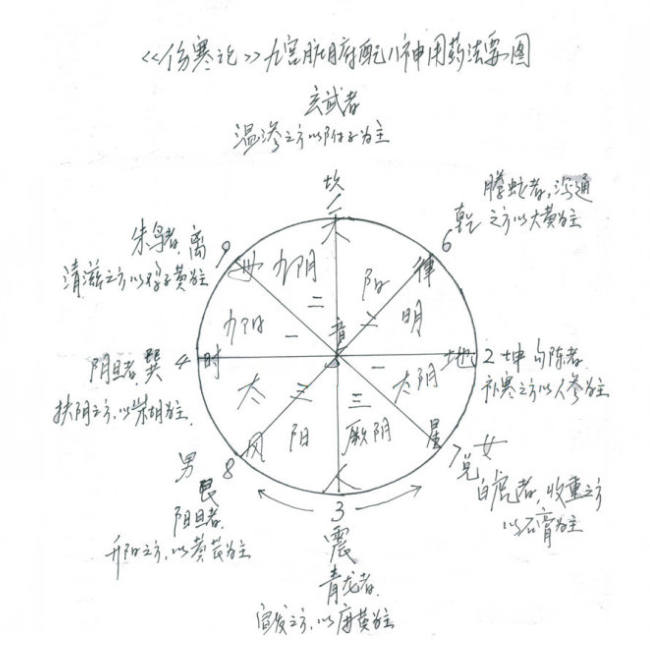 <<伤寒论>>九宫脏腑配八神用药法要图
玄武者
温渗之方以附子为主
坎
一
天
螣蛇者,沟通
乾 之方以大黄为主
6
律
朱鸟者,离
清滋之方以鸡子黄为主
9
少阴
二
阳
明
二
少阳
一
音
5
阴旦者,巽 4 时
扶阴之方,以柴胡为主
地 2 坤 勾陈者
补寒之方以人参为主
一
太阴
太
三
阳
三
厥阴
风
星
人
男
8
艮
阳旦者,
升阳之方,以黄芪为主
7 女
兑
白虎者,收重之方
以石膏为主
3
震
青龙者,
宣发之方,以麻黄为主